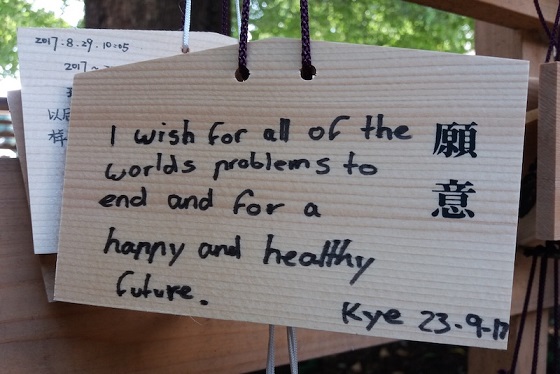 I wish for all of the
worlds problems to
end and for a
happy and healthy
future.
Kye 23-9-17
願意
2017.8.29.10:05
2017
以后